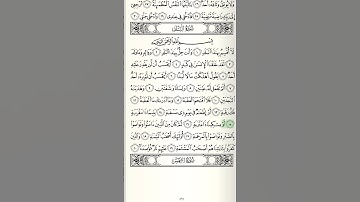 وَلَا يُوثِقُ وَثَاقَهُۥٓ أَحَدٌ ٢٦ يَـٰٓأَيَّتُهَا ٱلنَّفْسُ ٱلْمُطْمَئِنَّةُ ٢٧ ٱرْجِعِىٓ
إِلَىٰ رَبِّكِ رَاضِيَةً مَّرْضِيَّةً ٢٨ فَٱدْخُلِى فِى عِبَـٰدِى ٢٩ وَٱدْخُلِى جَنَّتِى ٣٠
سُورَةُ البَلَدِ
بِسْمِ ٱللَّهِ ٱلرَّحْمَـٰنِ ٱلرَّحِيمِ
لَآ أُقْسِمُ بِهَـٰذَا ٱلْبَلَدِ ١ وَأَنتَ حِلٌّۢ بِهَـٰذَا ٱلْبَلَدِ ٢ وَوَالِدٍ وَمَا وَلَدَ
٣ لَقَدْ خَلَقْنَا ٱلْإِنسَـٰنَ فِى كَبَدٍ ٤ أَيَحْسَبُ أَن لَّن يَقْدِرَ عَلَيْهِ أَحَدٌ
٥ يَقُولُ أَهْلَكْتُ مَالًا لُّبَدًا ٦ أَيَحْسَبُ أَن لَّمْ يَرَهُۥٓ أَحَدٌ ٧
أَلَمْ نَجْعَل لَّهُۥ عَيْنَيْنِ ٨ وَلِسَانًا وَشَفَتَيْنِ ٩ وَهَدَيْنَـٰهُ
ٱلنَّجْدَيْنِ ١٠ فَلَا ٱقْتَحَمَ ٱلْعَقَبَةَ ١١ وَمَآ أَدْرَىٰكَ مَا ٱلْعَقَبَةُ ١٢
فَكُّ رَقَبَةٍ ١٣ أَوْ إِطْعَـٰمٌ فِى يَوْمٍ ذِى مَسْغَبَةٍ ١٤ يَتِيمًا ذَا مَقْرَبَةٍ
١٥ أَوْ مِسْكِينًا ذَا مَتْرَبَةٍ ١٦ ثُمَّ كَانَ مِنَ ٱلَّذِينَ ءَامَنُوا۟ وَتَوَاصَوْا۟
بِٱلصَّبْرِ وَتَوَاصَوْا۟ بِٱلْمَرْحَمَةِ ١٧ أُو۟لَـٰٓئِكَ أَصْحَـٰبُ ٱلْمَيْمَنَةِ ١٨ وَٱلَّذِينَ
كَفَرُوا۟ بِـَٔايَـٰتِنَا هُمْ أَصْحَـٰبُ ٱلْمَشْـَٔمَةِ ١٩ عَلَيْهِمْ نَارٌ مُّؤْصَدَةٌۢ ٢٠
سُورَةُ الشَّمْسِ